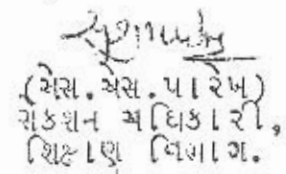 (એસ.એસ.પારેખ)
સેકશન અધિકારી,
શિક્ષણ વિભાગ.